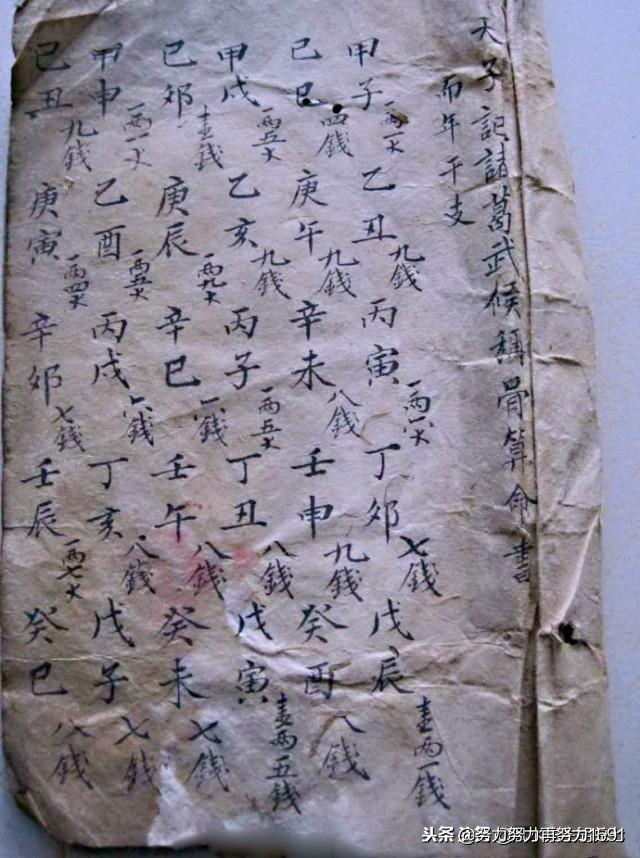 天子記諸葛武候稱骨算命書
而年干支
甲子 一兩一 乙丑 九錢 丙寅 一兩 丁卯 七錢 戊辰 壹兩一錢
己巳 四錢 庚午 九錢 辛未 八錢 壬申 九錢 癸酉 八錢
甲戌 一兩五 乙亥 九錢 丙子 一兩五 丁丑 八錢 戊寅 壹兩五錢
己卯 壹錢 庚辰 一兩九 辛巳 錢 壬午 八錢 癸未 七錢
甲申 一兩一 乙酉 一兩五 丙戌 六錢 丁亥 八錢 戊子 七錢
己丑 九錢 庚寅 一兩四 辛卯 七錢 壬辰 一兩七 癸巳 八錢
头条 @努力努力再努力